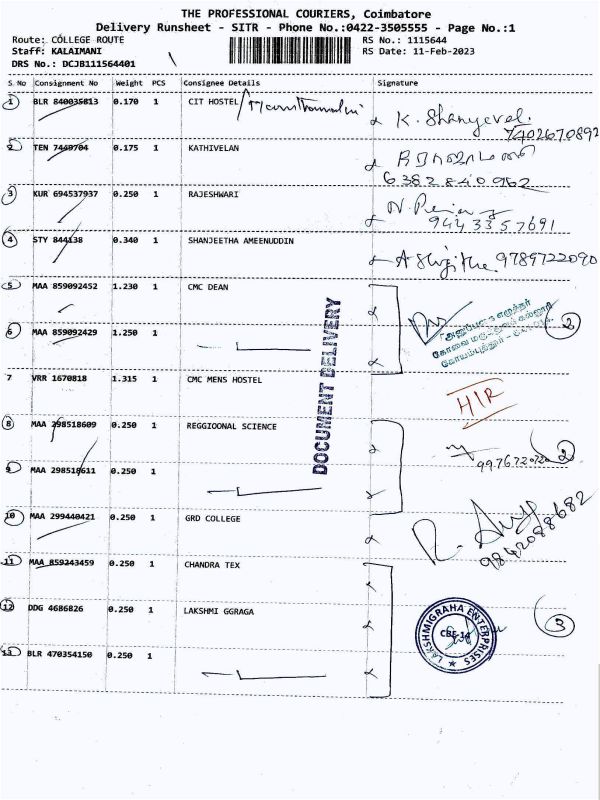 THE PROFESSIONAL COURIERS, Coimbatore
Delivery Runsheet - SITR - Phone No.:0422-3505555 - Page No.:1
Route: COLLEGE ROUTE RS No.: 1115644
Staff: KALAIMANI RS Date: 11-Feb-2023
DRS No.: DCJB111564401
S No Consignment No Weight PCS Consignee Details Signature
1 BLR 840035813 0.170 1 CIT HOSTEL K. Shanyavel
7402670892
2 TEN 7449704 0.175 1 KATHIVELAN
6382840962
3 KUR 694537937 0.250 1 RAJESHWARI
9443357691
4 STY 844138 0.340 1 SHANJEETHA AMEENUDDIN 9789722090
5 MAA 859092452 1.230 1 CMC DEAN
6 MAA 859092429 1.250 1 2
கோயம்புத்தூர்
DOCUMENT DELIVERY
7 VRR 1670818 1.315 1 CMC MENS HOSTEL
H/R
8 MAA 298518609 0.250 1 REGGIOONAL SCIENCE
9976720720 2
9 MAA 298518611 0.250 1
10 MAA 299440421 0.250 1 GRD COLLEGE
9842088682
11 MAA 859243459 0.250 1 CHANDRA TEX
12 DDG 4686826 0.250 1 LAKSHMI GGRAGA
LAKSHMIGRAHA ENTERPRISES
CBE-14
3
13 BLR 470354150 0.250 1